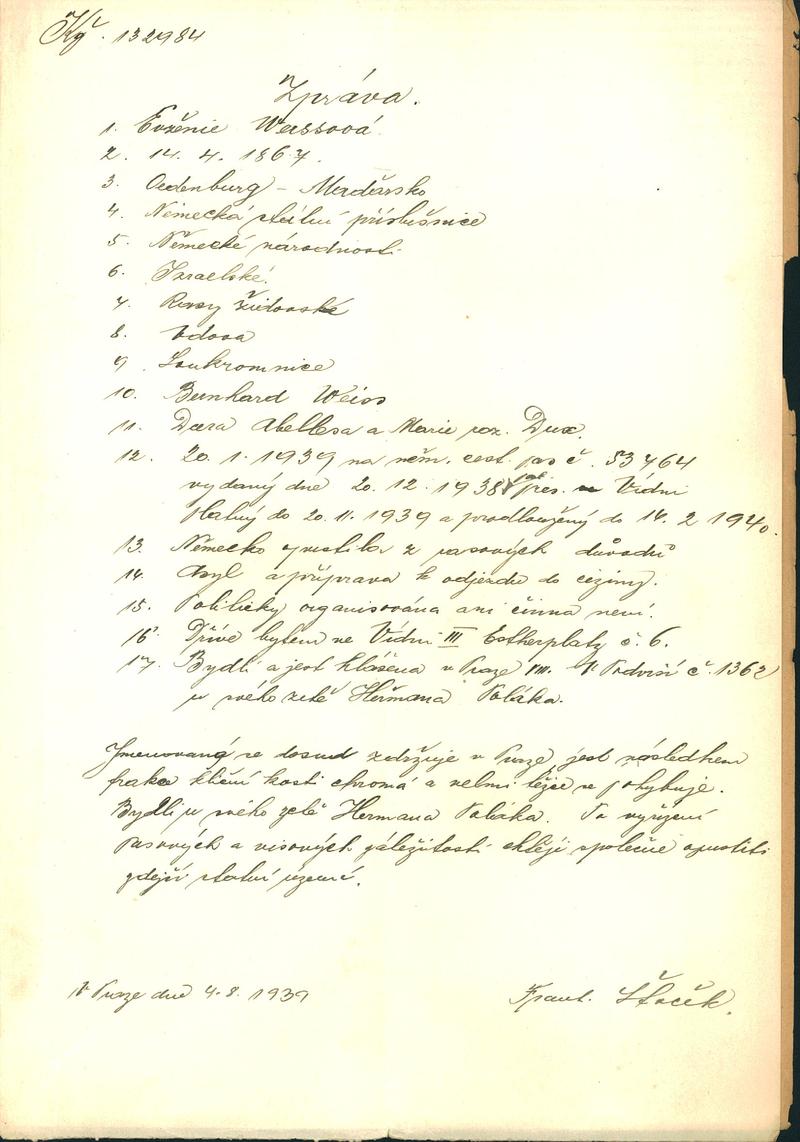 Kyč. 132984
Zpráva.
1. Evženie Weissová
2. 14. 4. 1867.
3. Oedenburg - Maďarsko
4. Německá státní příslušnice
5. Německé národnosti
6. Israelské.
7. Rasy židovské
8. Vdova
9. Soukromnice
10. Bernhard Weiss
11. Dcera Abellesa a Marie roz. Dux.
12. 20. 1. 1939 na něm. cest. pas č. 53464
vydaný dne 20. 12. 1938 pol. pres. ve Vídni
platný do 20. 11. 1939 a prodloužený do 14. 2 1940.
13. Německo opustila z rasových důvodů
14. Asyl a příprava k odjezdu do ciziny.
15. Politicky organisována ani činna není.
16. Dříve bytem ve Vídni III Estherplatz č. 6.
17. Bydlí a jest hlášena v Praze VII. Na Podvrší č. 1362
u svého zetě Heřmana Poláka.
Jmenovaná se dosud zdržuje v Praze, jest následkem
kosti chromá a velmi těžce se pohybuje.
Bydlí u svého zetě Hermana Poláka. Po vyřízení
pasových a visových záležitostí chtějí společně opustiti
zdejší státní území.
V Praze dne 4. 8. 1939
Frant.